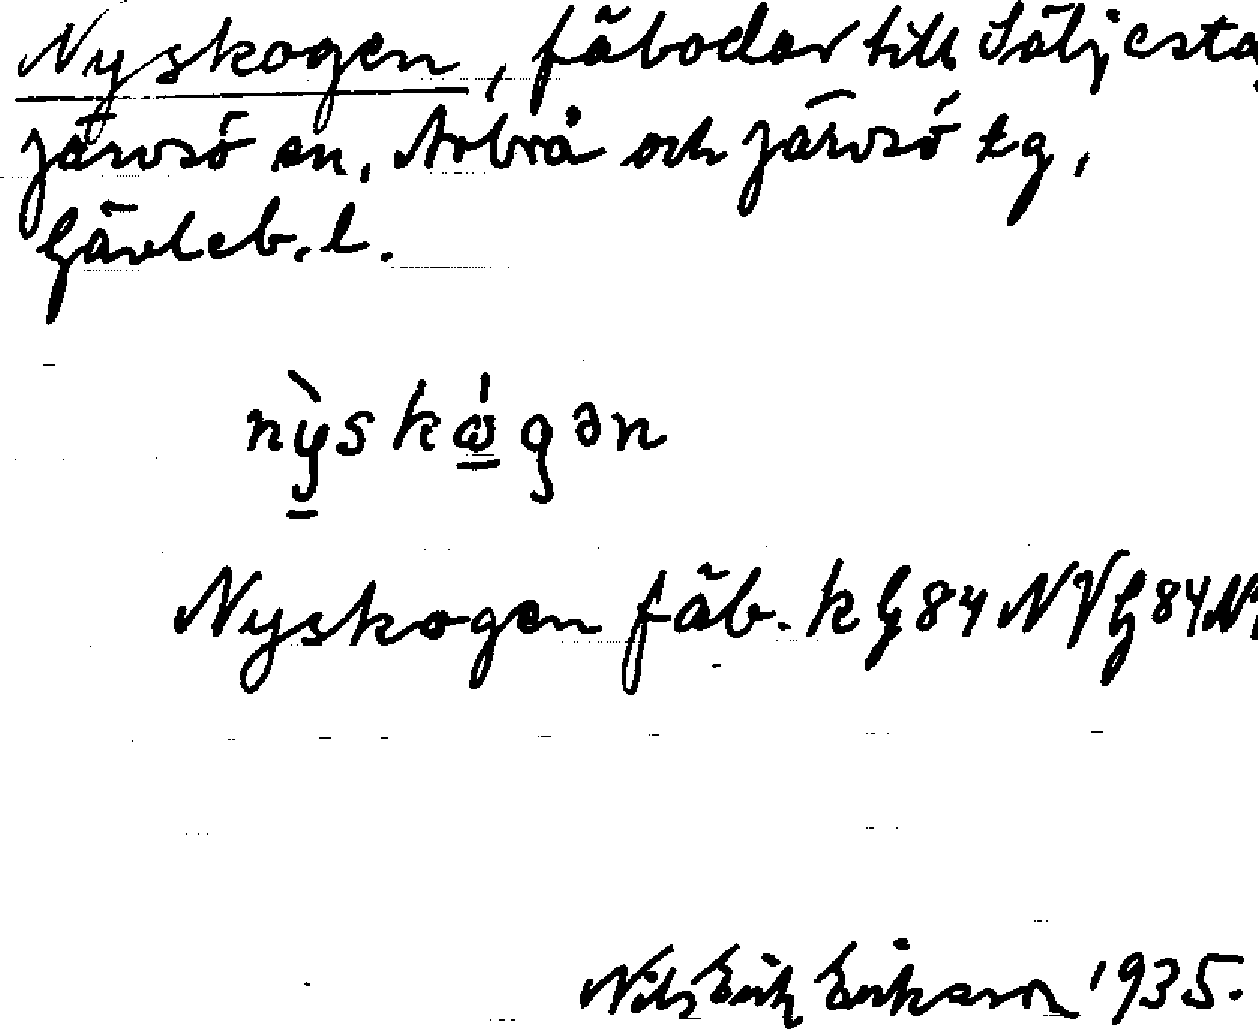 Nyskogen, fäbodar till Säljesta,
Järvsö sn, Arbrå och Järvsö tg,
Gävleb. l.
nỳskω̇gən
Nyskogen fäb. k G84NV G84N
Nils Erik Eriksson 1935.